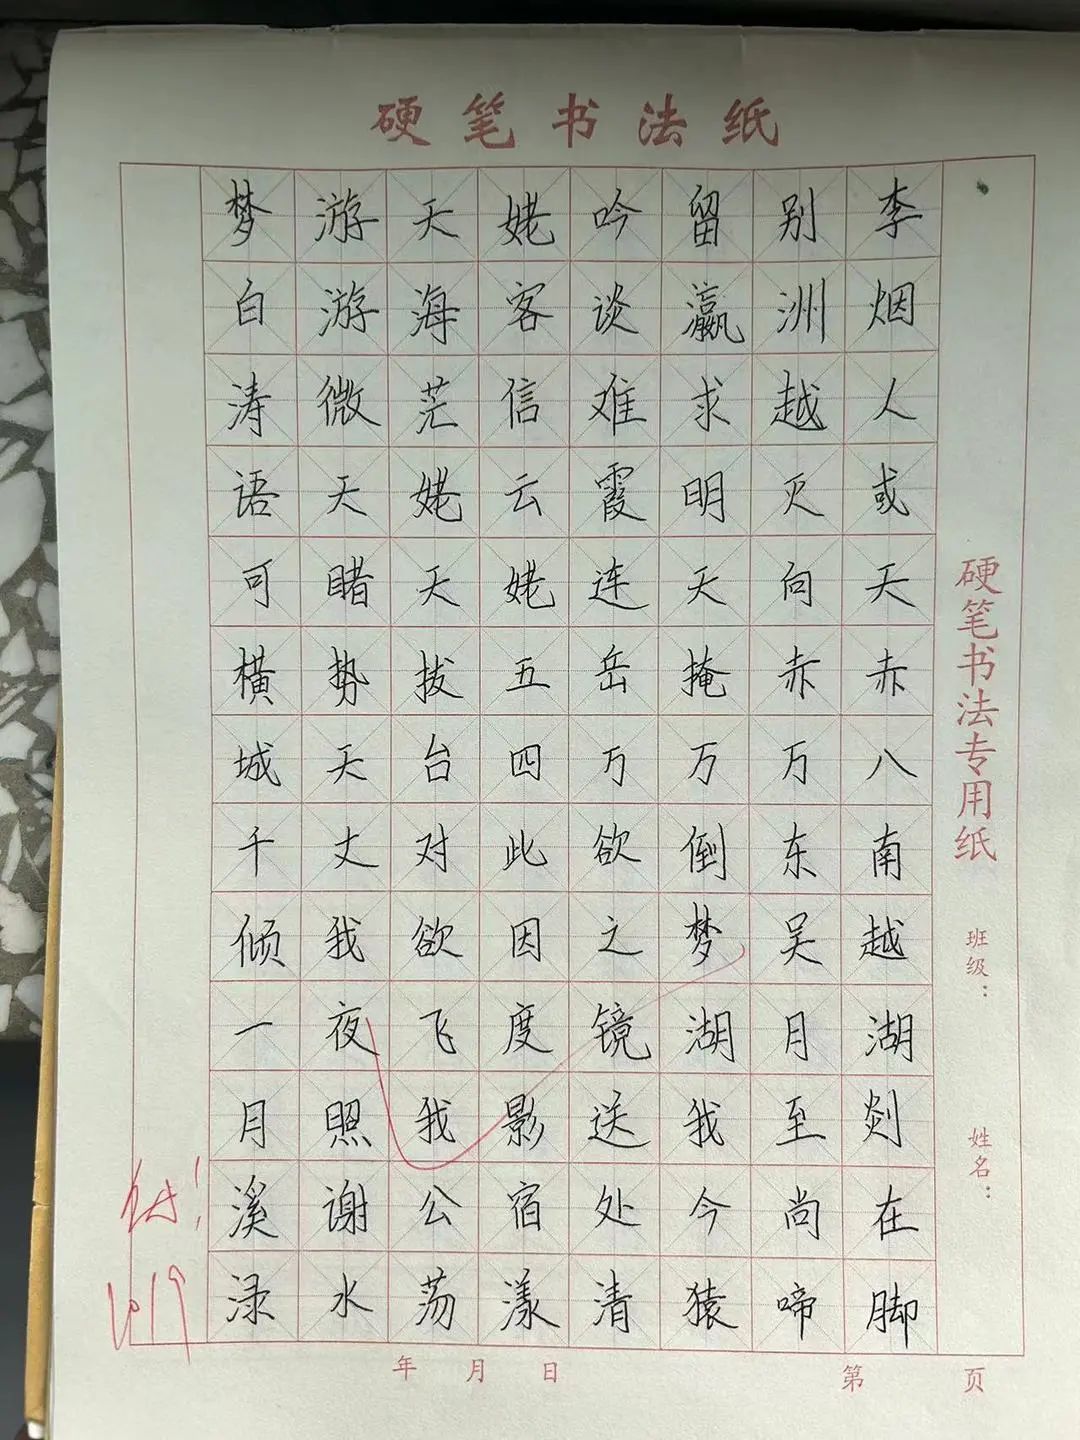 硬笔书法纸
梦游天姥吟留别李
白游海客谈瀛洲烟
涛微芒信难求越人
语天姥云霞明灭或
可睹天姥连天向天
横势拔五岳掩赤赤
城天台四万万万八
千丈对此欲倒东南
倾我欲因之梦吴越
一夜飞度镜湖月湖
月照我影送我至剡
溪谢公宿处今尚在
渌水荡漾清猿啼脚
硬笔书法专用纸
班级：
姓名：
年 月 日
第 页